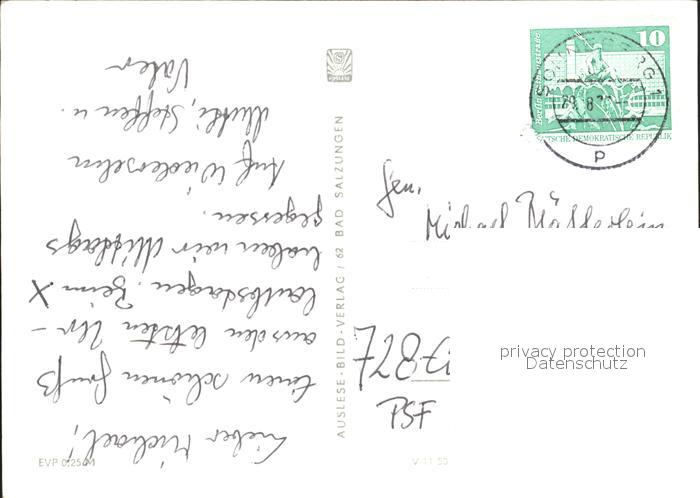 Lieber Michael!
Einen schönen Gruß
aus den letzten Ur-
laubstagen. Beim X
haben wir Mittags
gegessen.
Auf Wiedersehn
Mutti, Steffen u.
Vater
EVP 0,25 M
V 11 50
AUSLESE-BILD-VERLAG / 62 BAD SALZUNGEN
10
DEUTSCHE DEMOKRATISCHE REPUBLIK
SONNEBERG 1
P
Gen.
Michael
PSF
privacy protection
Datenschutz